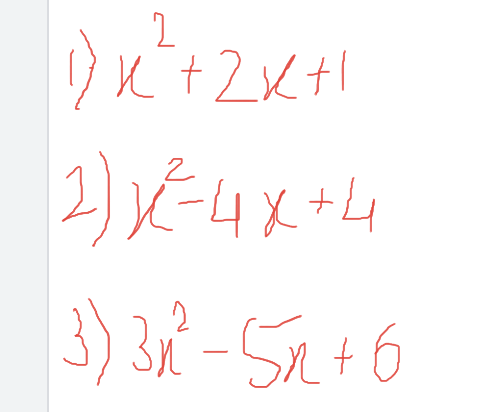 1) x² + 2x + 1
2) x² - 4x + 4
3) 3x² - 5x + 6